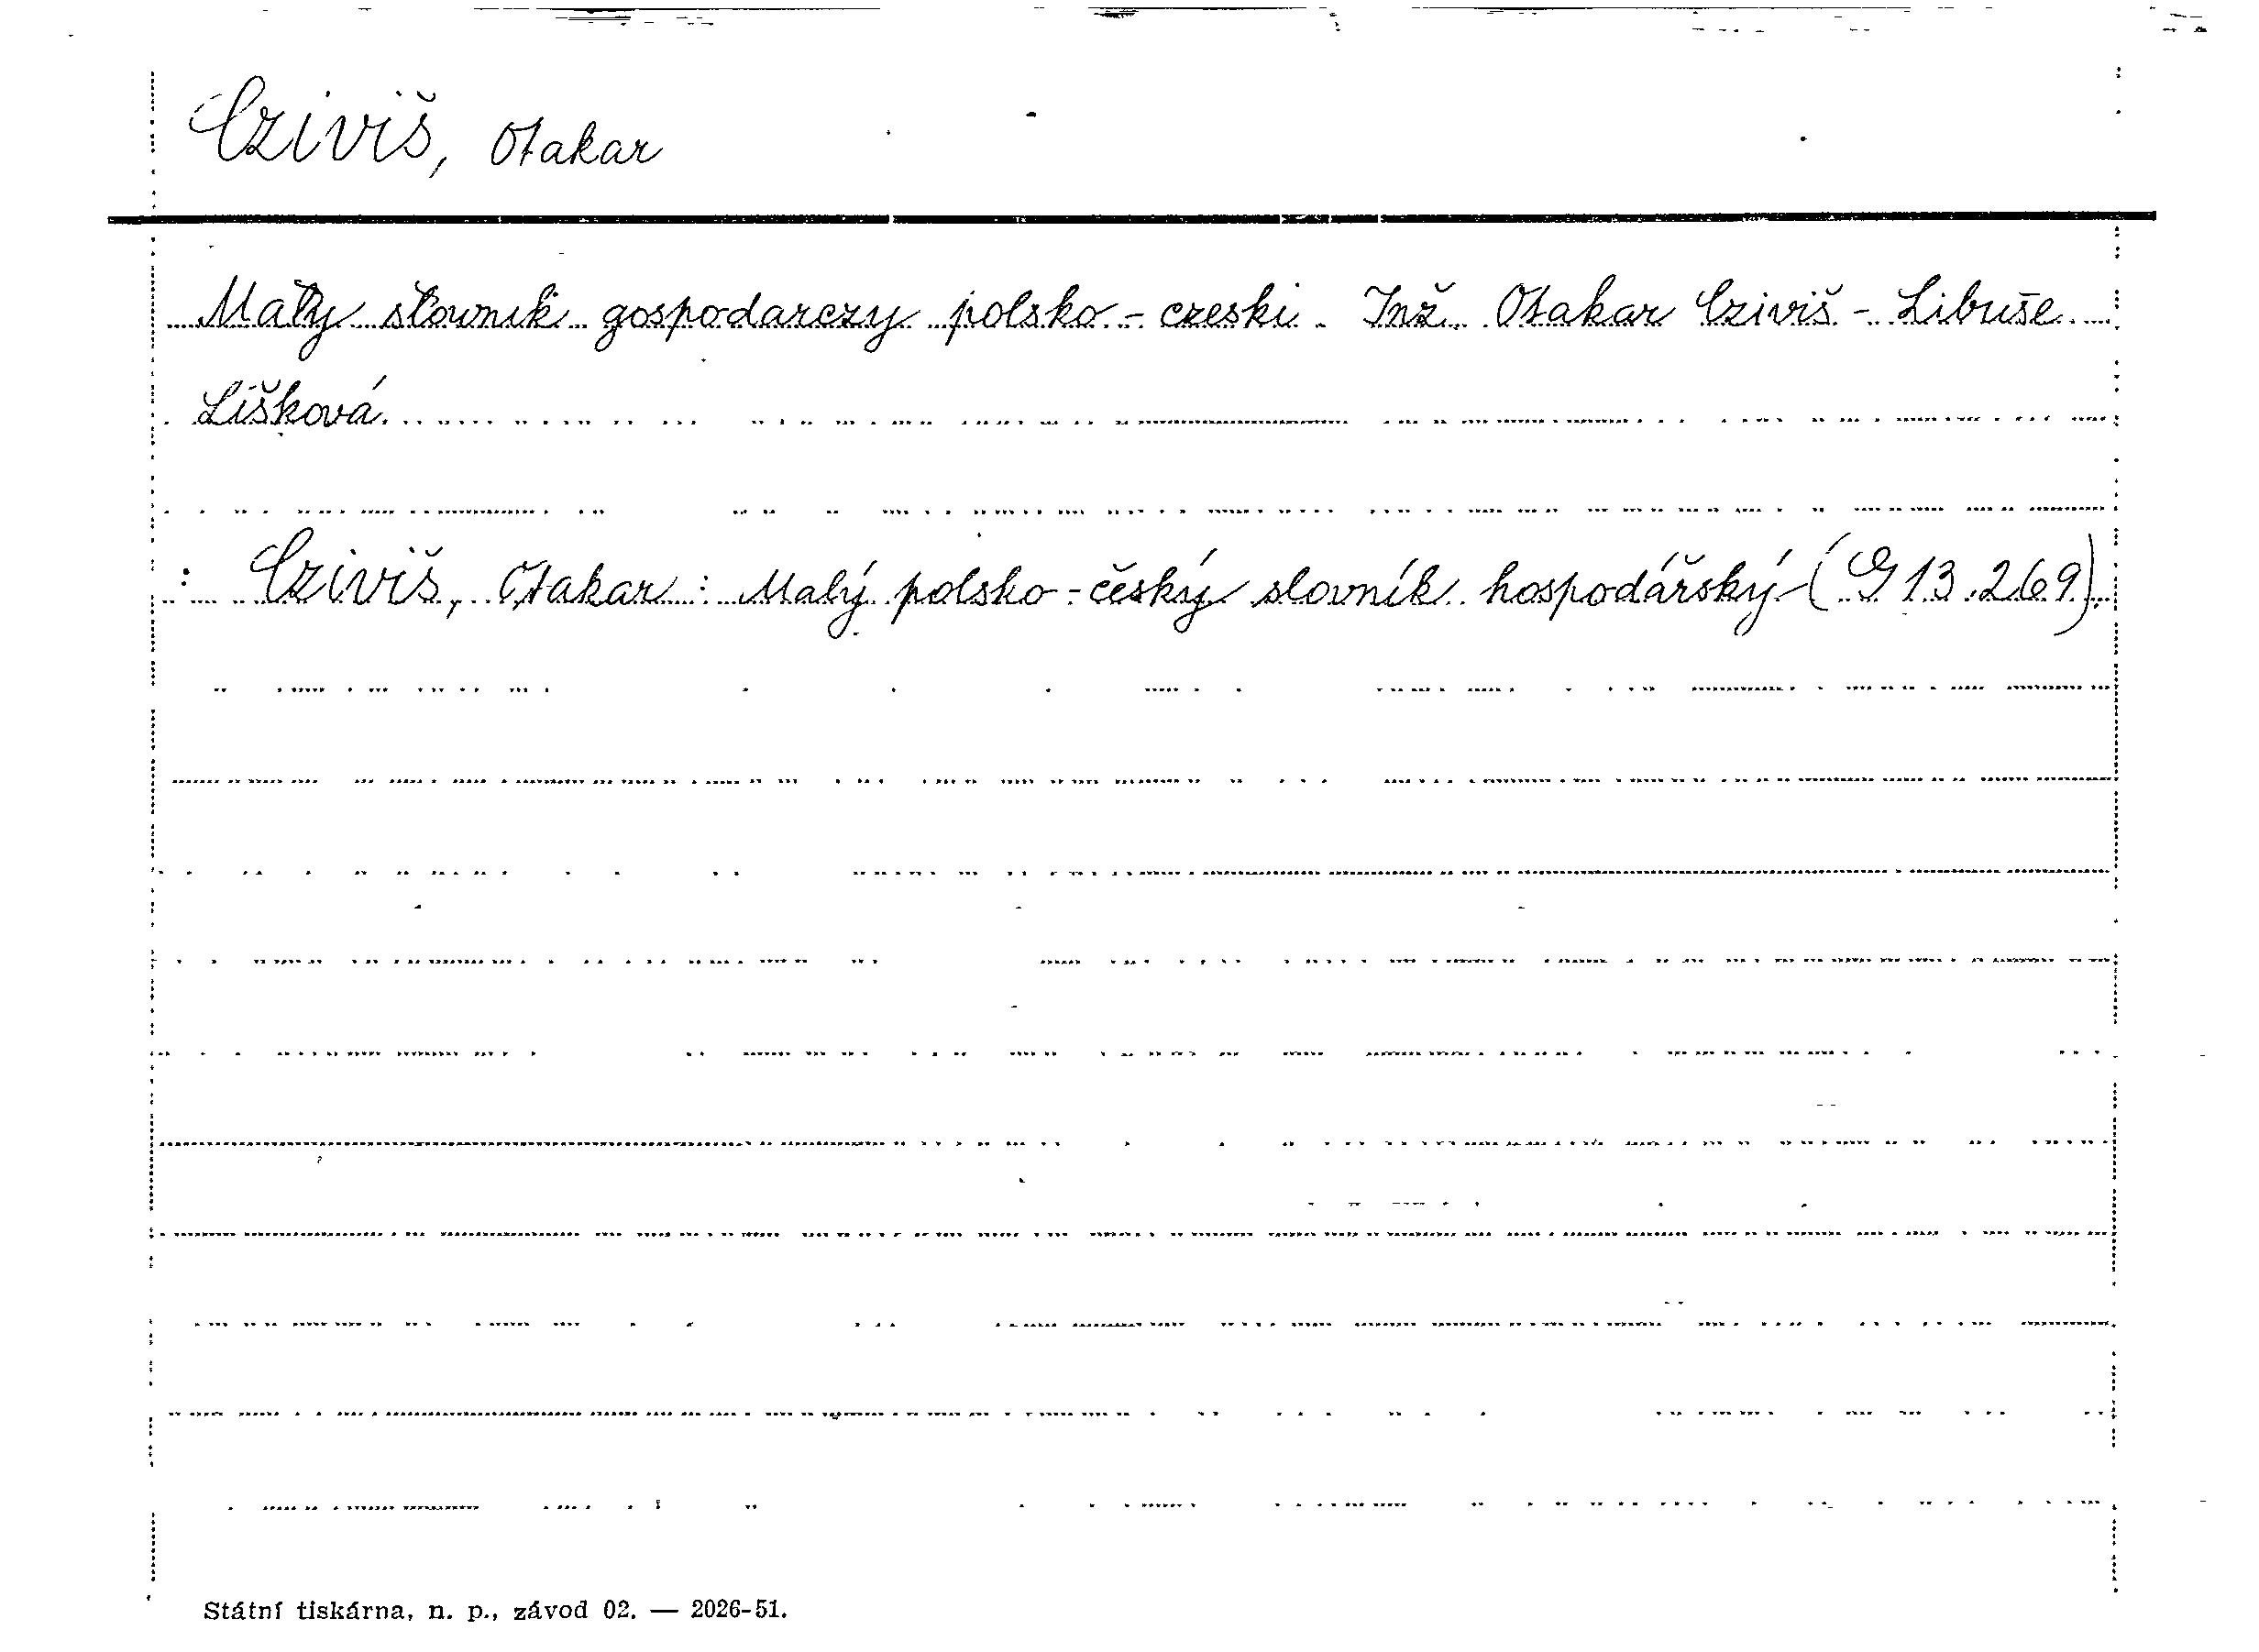 Cziviš, Otakar
Mały słownik gospodarczy polsko-czeski. Inž. Otakar Cziviš - Libuše
Lišková.
: Cziviš, Otakar: Malý polsko-český slovník hospodářský (G 13.269).
Státní tiskárna, n. p., závod 02. — 2026-51.